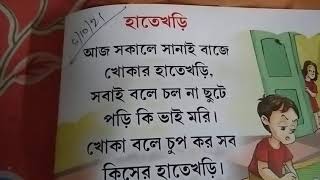 হাতেখড়ি
আজ সকালে সানাই বাজে
খোকার হাতেখড়ি,
সবাই বলে চল না ছুটে
পড়ি কি ভাই মরি।
খোকা বলে চুপ কর সব
কিসের হাতেখড়ি।